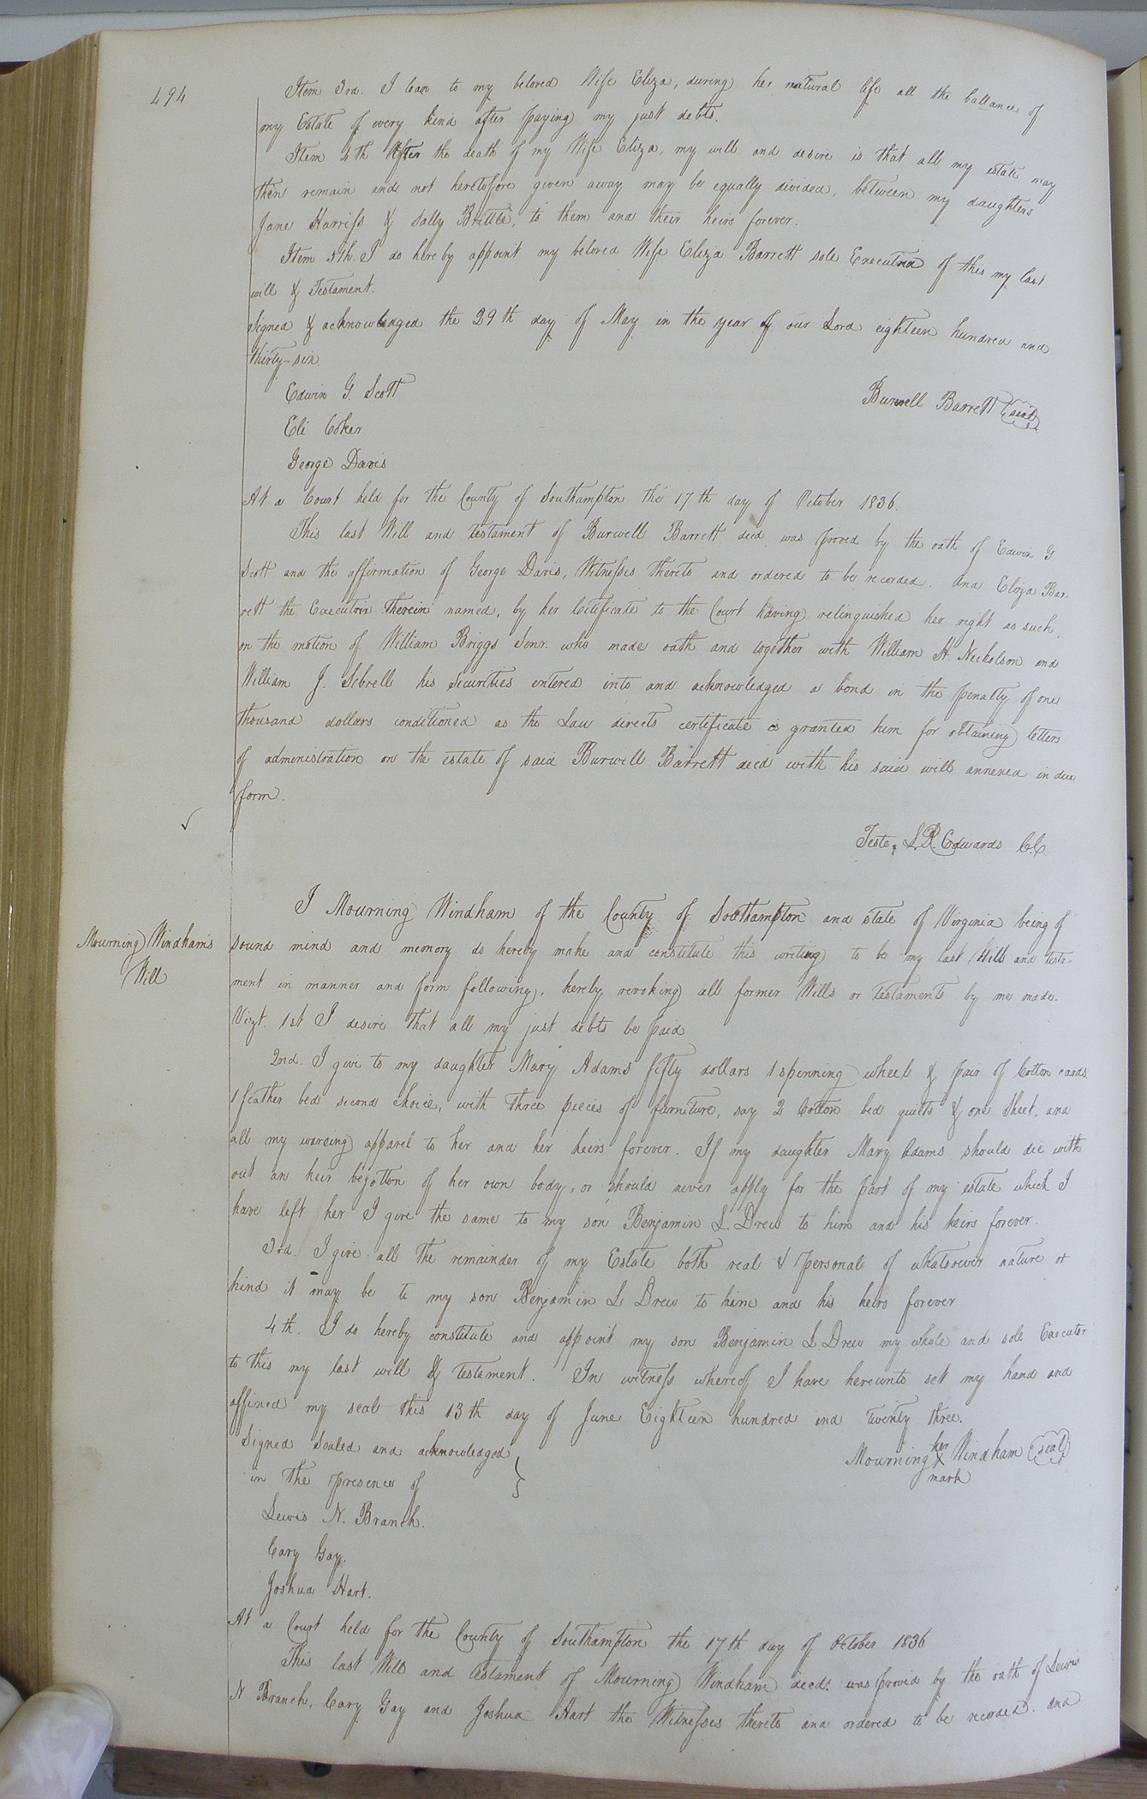 494
Item 3rd. I leave to my beloved Wife Eliza, during her natural life all the ballance of
my Estate of every kind after paying my just debts.
Item 4th After the death of my Wife Eliza, my will and desire is that all my estate may
then remain and not heretofore given away may be equally divided, between my daughters
Jane Harriss & Sally Brittle, to them and their heirs forever.
Item 5th. I do hereby appoint my beloved Wife Eliza Barrett sole Executrix of this my last
will & Testament.
Signed & acknowledged the 29th day of May in the year of our Lord eighteen hundred and
thirty-six.
Edwin G. Scott
Burwell Barrett (seal)
Eli Coker
George Davis
At a Court held for the County of Southampton the 17th day of October 1836.
This last Will and testament of Burwell Barrett decd was proved by the oath of Edwin G
Scott and the affirmation of George Davis, Witnesses thereto and ordered to be recorded. And Eliza Bar-
rett the Executrix therein named, by her Certificate to the Court having relinquished her right as such,
on the motion of William Briggs Senr. who made oath and together with William H. Nicholson and
William J. Sebrell his Securities entered into and acknowledged a bond in the penalty of one
thousand dollars conditioned as the Law directs certificate is granted him for obtaining letters
of administration on the estate of said Burwell Barrett decd with his said will annexed in due
form.
Teste, L. R. Edwards C.C.
Mourning Windham's
Will
I Mourning Windham of the County of Southampton and state of Virginia being of
sound mind and memory do hereby make and constitute this writing to be my last Will and testa-
ment in manner and form following, hereby revoking all former Wills or testaments by me made.
Vizt. 1st I desire that all my just debts be paid
2nd. I give to my daughter Mary Adams fifty dollars 1 spinning wheel & pair of Cotton cards
1 feather bed second choice, with three pieces of furniture, say 2 Cotton bed quilts & one Sheet, and
all my wearing apparel to her and her heirs forever. If my daughter Mary Adams should die with
out an heir begotton of her own body, or should never apply for the part of my estate which I
have left her I give the same to my son Benjamin L. Drew to him and his heirs forever.
3rd. I give all the remainder of my Estate both real & personal of whatsoever nature or
kind it may be to my son Benjamin L Drew to him and his heirs forever
4th. I do hereby constitute and appoint my son Benjamin L Drew my whole and sole Executor
to this my last will & testament. In witness whereof I have hereunto set my hand and
affixed my seal this 13th day of June Eighteen hundred and twenty three.
Signed Sealed and acknowledged
in the presence of
Mourning her X mark Windham (seal)
Lewis N. Branch.
Cary Gay.
Joshua Hart.
At a Court held for the County of Southampton the 17th day of October 1836
This last Will and testament of Mourning Windham decd. was proved by the oath of Lewis
N Branch, Cary Gay and Joshua Hart the Witnesses thereto and ordered to be recorded. and